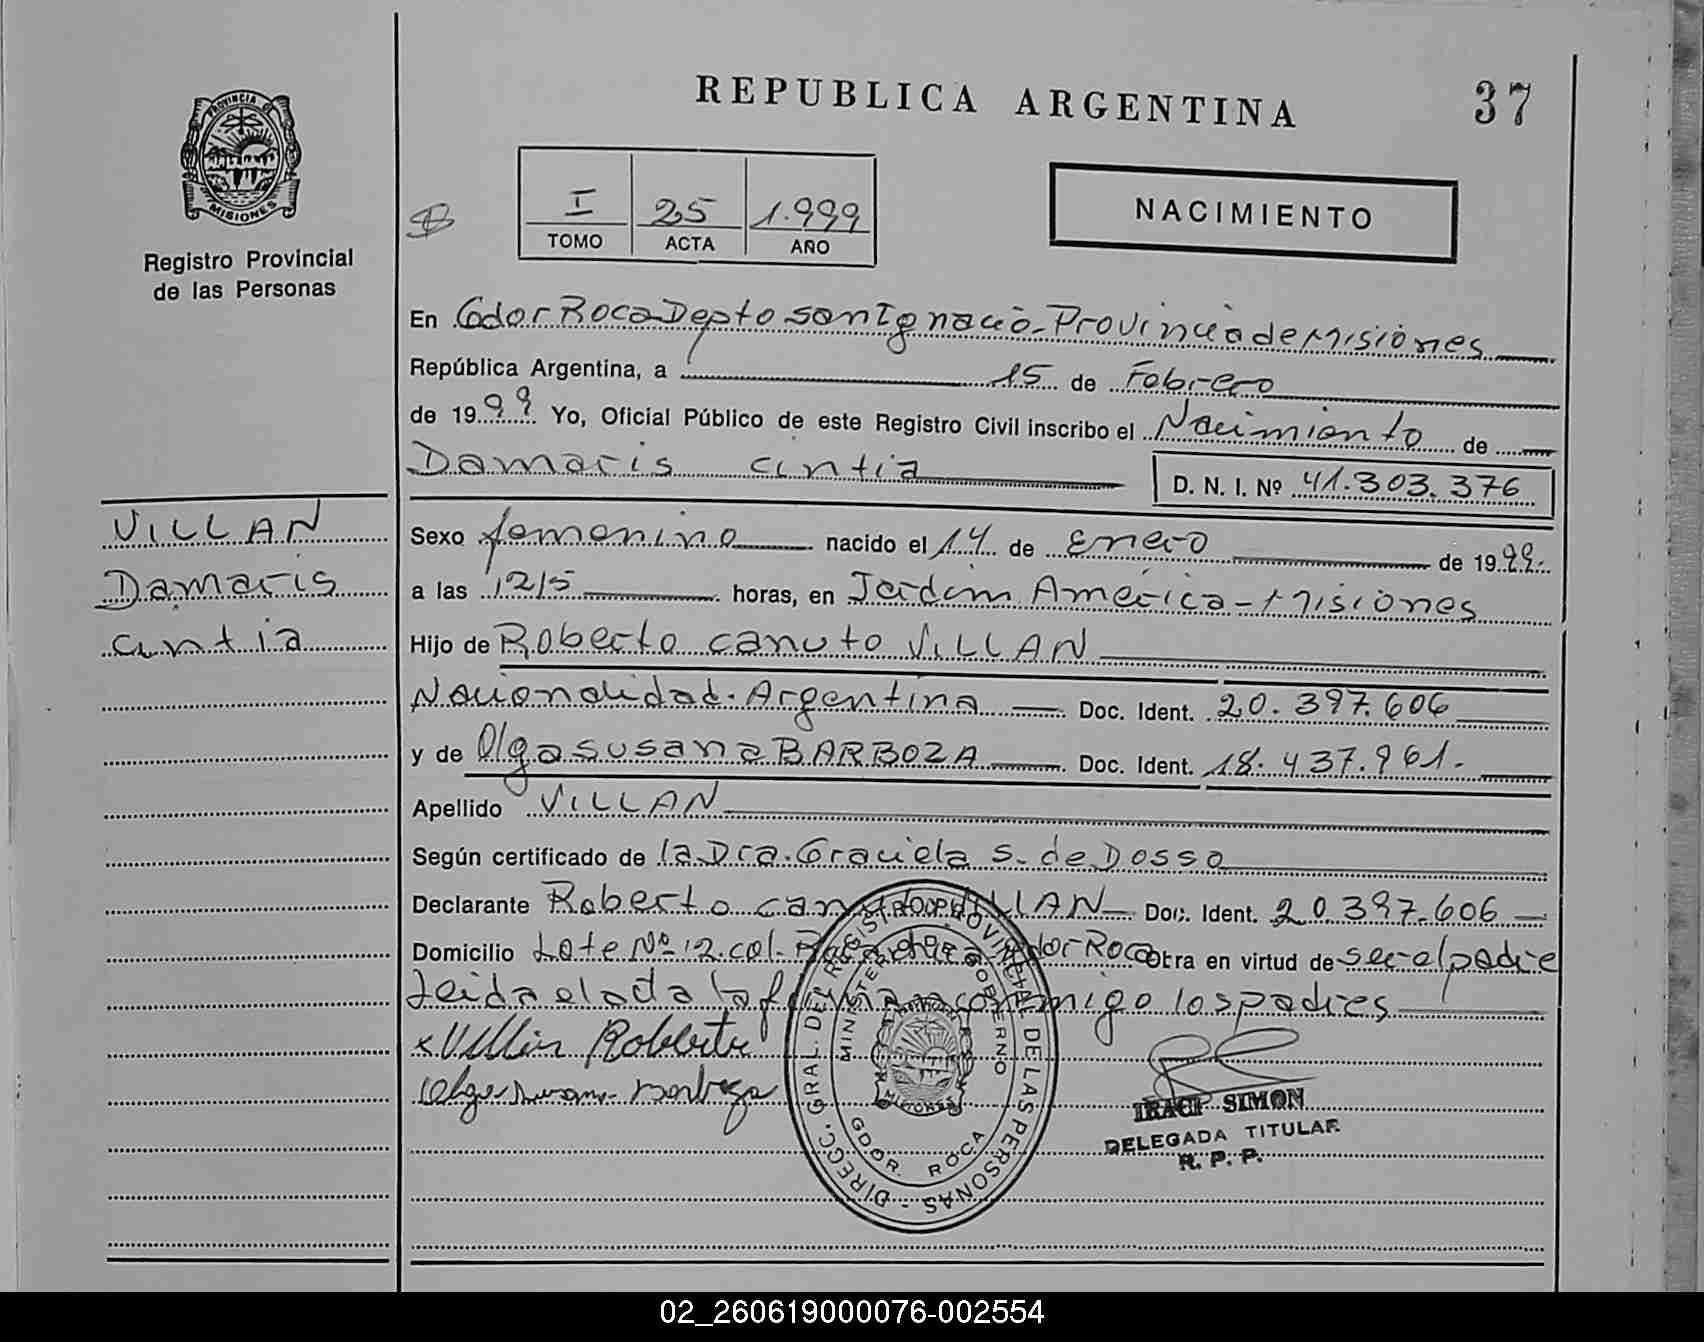 REPUBLICA ARGENTINA
37
PROVINCIA DE
MISIONES
Registro Provincial
de las Personas
I 25 1.999
TOMO ACTA AÑO
NACIMIENTO
En Gdor Roca Depto San Ignacio - Provincia de Misiones
República Argentina, a 15 de Febrero
de 1999 Yo, Oficial Público de este Registro Civil inscribo el Nacimiento de
Damaris Cintia D. N. I. Nº 41.303.376
VILLAN
Damaris
Cintia
Sexo femenino nacido el 14 de Enero de 1999.
a las 1215 horas, en Jardin América - Misiones
Hijo de Roberto Canuto VILLAN
Nacionalidad. Argentina Doc. Ident. 20.397.606
y de Olga Susana BARBOZA Doc. Ident. 18.437.961.
Apellido VILLAN
Según certificado de la Dra. Graciela S. de Dosso
Declarante Roberto Canuto VILLAN Doc. Ident. 20.397.606
Domicilio Lote Nº 12. Col. Gdor Roca Obra en virtud de ser el padre
Leida el acta la firman conmigo los padres
x Villan Roberto
Olga Susana Barboza
DIRECC. GRAL. DEL REGISTRO PROVINCIAL DE LAS PERSONAS -
MINISTERIO DE GOBIERNO
MISIONES
GDOR. ROCA
IRACI SIMON
DELEGADA TITULAR
R. P. P.
02_260619000076-002554